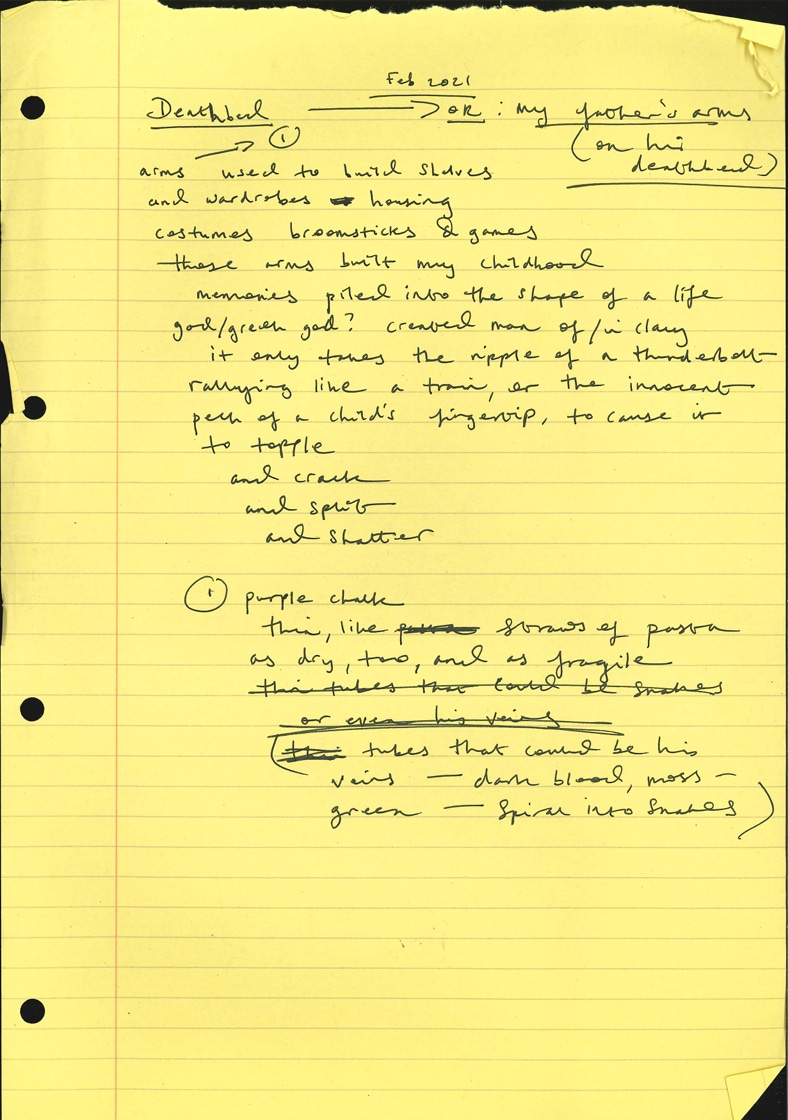 Feb 2021
Deathbed → OR : my father's arms
(on his
deathbed)
①
arms used to build shelves
and wardrobes housing
costumes broomsticks & games
these arms built my childhood
memories piled into the shape of a life
god/greek god? created man of/in clay
it only takes the ripple of a thunderbolt
rallying like a train, or the innocent
peck of a child's fingertip, to cause it
to topple
and crack
and split
and shatter
① purple chalk
thin, like straws of pasta
as dry, too, and as fragile
thin tubes that could be snakes
or even his veins
(thin tubes that could be his
veins — dark blood, moss –
green — spiral into snakes)